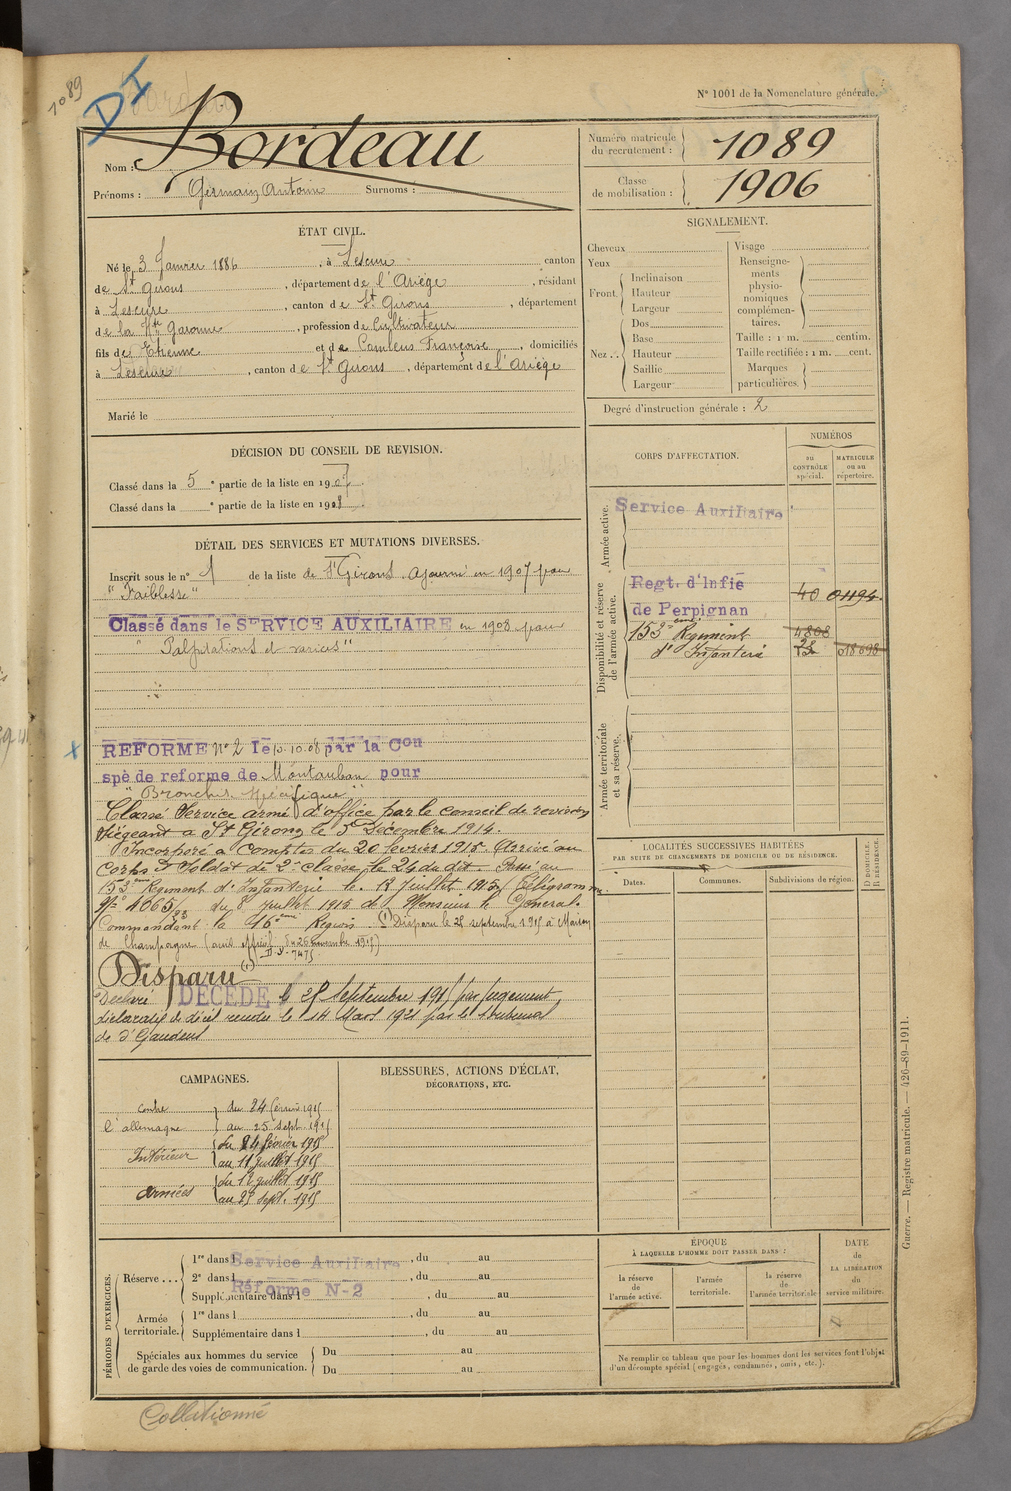 1089
DI
N° 1001 de la Nomenclature générale.
Nom : Bordeau
Prénoms : Germain Antoine Surnoms :
Numéro matricule du recrutement : 1089
Classe de mobilisation : 1906
ÉTAT CIVIL.
Né le 3 Janvier 1886, à Lescure canton
de St Girons, département de l'Ariège, résidant
à Lescure, canton de St Girons, département
de la Hte Garonne, profession de Cultivateur
fils de Etienne et de Camleus Françoise, domiciliés
à Lescure, canton de St Girons, département de l'Ariège
Marié le
SIGNALEMENT.
Cheveux
Yeux
Front. Inclinaison
Hauteur
Largeur
Nez .. Dos
Base
Hauteur
Saillie
Largeur
Visage
Renseignements physionomiques complémentaires.
Taille : 1 m. centim.
Taille rectifiée : 1 m. cent.
Marques particulières.
Degré d'instruction générale : 2
DÉCISION DU CONSEIL DE REVISION.
Classé dans la 5e partie de la liste en 1907
Classé dans la e partie de la liste en 1908
DÉTAIL DES SERVICES ET MUTATIONS DIVERSES.
Inscrit sous le n° 1 de la liste de St Girons. Ajourné en 1907 pour
"Faiblesse"
Classé dans le SERVICE AUXILIAIRE en 1908 pour
"Palpitations et varices"
REFORME N° 2 le 10.08 par la Con
spè de reforme de Montauban pour
"Bronchite spécifique"
Classé Service armé d'office par le conseil de revision
siégeant à St Girons le 5 Décembre 1914.
Incorporé à compter du 20 février 1915. Arrivé au
Corps & Soldat de 2e classe le 24 du dit. Passé au
153eme Regiment d'Infanterie le 12 Juillet 1915, Télégramme
N° 4365/ du 8 Juillet 1915 de Monsieur le Général
Commandant la 16eme Région (1) Disparu le 25 septembre 1915 à
de Champagne (avis officiel du 26 novembre 1915)
Disparu (1)
Déclaré DÉCÉDÉ le 25 Septembre 1915 par jugement
déclaratif de décès rendu le 14 Mars 1921 par le tribunal
de St Gaudens
CORPS D'AFFECTATION.
NUMÉROS
au CONTRÔLE spécial.
MATRICULE ou au répertoire.
Armée active.
Service Auxiliaire
Disponibilité et réserve de l'armée active.
Regt. d'Infie
de Perpignan 40 01194
153eme Regiment 4808
d'Infanterie 018698
Armée territoriale et sa réserve.
LOCALITÉS SUCCESSIVES HABITÉES
PAR SUITE DE CHANGEMENTS DE DOMICILE OU DE RÉSIDENCE.
Dates. Communes. Subdivisions de région. D DOMICILE. R RÉSIDENCE.
CAMPAGNES.
contre l'allemagne du 24 février 1915
au 25 sept. 1915
Intérieur du 24 février 1915
au 11 juillet 1915
Armées du 12 juillet 1915
au 25 sept. 1915
BLESSURES, ACTIONS D'ÉCLAT,
DÉCORATIONS, ETC.
PÉRIODES D'EXERCICES.
Réserve ... 1re dans l Service Auxiliaire, du au
2e dans l, du au
Supplémentaire dans l Réforme N-2, du au
Armée territoriale. 1re dans l, du au
Supplémentaire dans l, du au
Spéciales aux hommes du service de garde des voies de communication. Du au
Du au
ÉPOQUE
À LAQUELLE L'HOMME DOIT PASSER DANS :
la réserve de l'armée active.
l'armée territoriale.
la réserve de l'armée territoriale
DATE de LA LIBÉRATION du service militaire.
Ne remplir ce tableau que pour les hommes dont les services font l'objet
d'un décompte spécial (engagés, condamnés, omis, etc.).
Guerre. — Registre matricule. — 426-89-1911.
Collationné